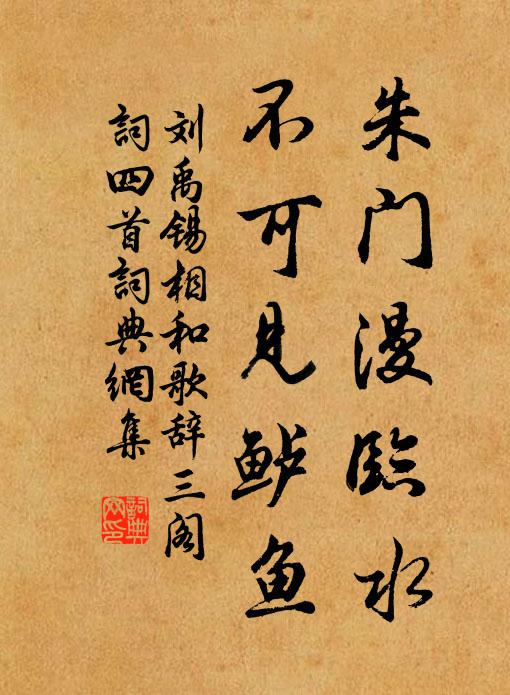 朱门漫临水
不可见鲈鱼
刘禹锡相和歌辞三阁
词四首词典网集
词典
网印